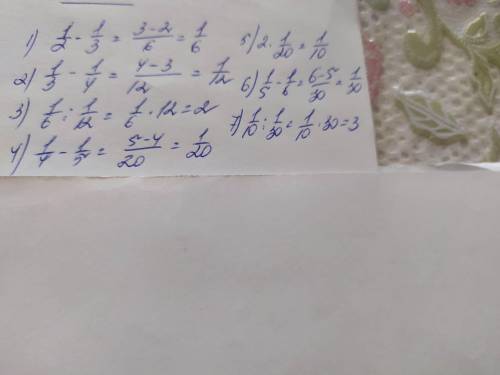 1) 1/2 - 1/3 = (3-2)/6 = 1/6
2) 1/3 - 1/4 = (4-3)/12 = 1/12
3) 1/6 : 1/12 = 1/6 · 12 = 2
4) 1/4 - 1/5 = (5-4)/20 = 1/20
5) 2 · 1/20 = 1/10
6) 1/5 - 1/6 = (6-5)/30 = 1/30
7) 1/10 : 1/30 = 1/10 · 30 = 3